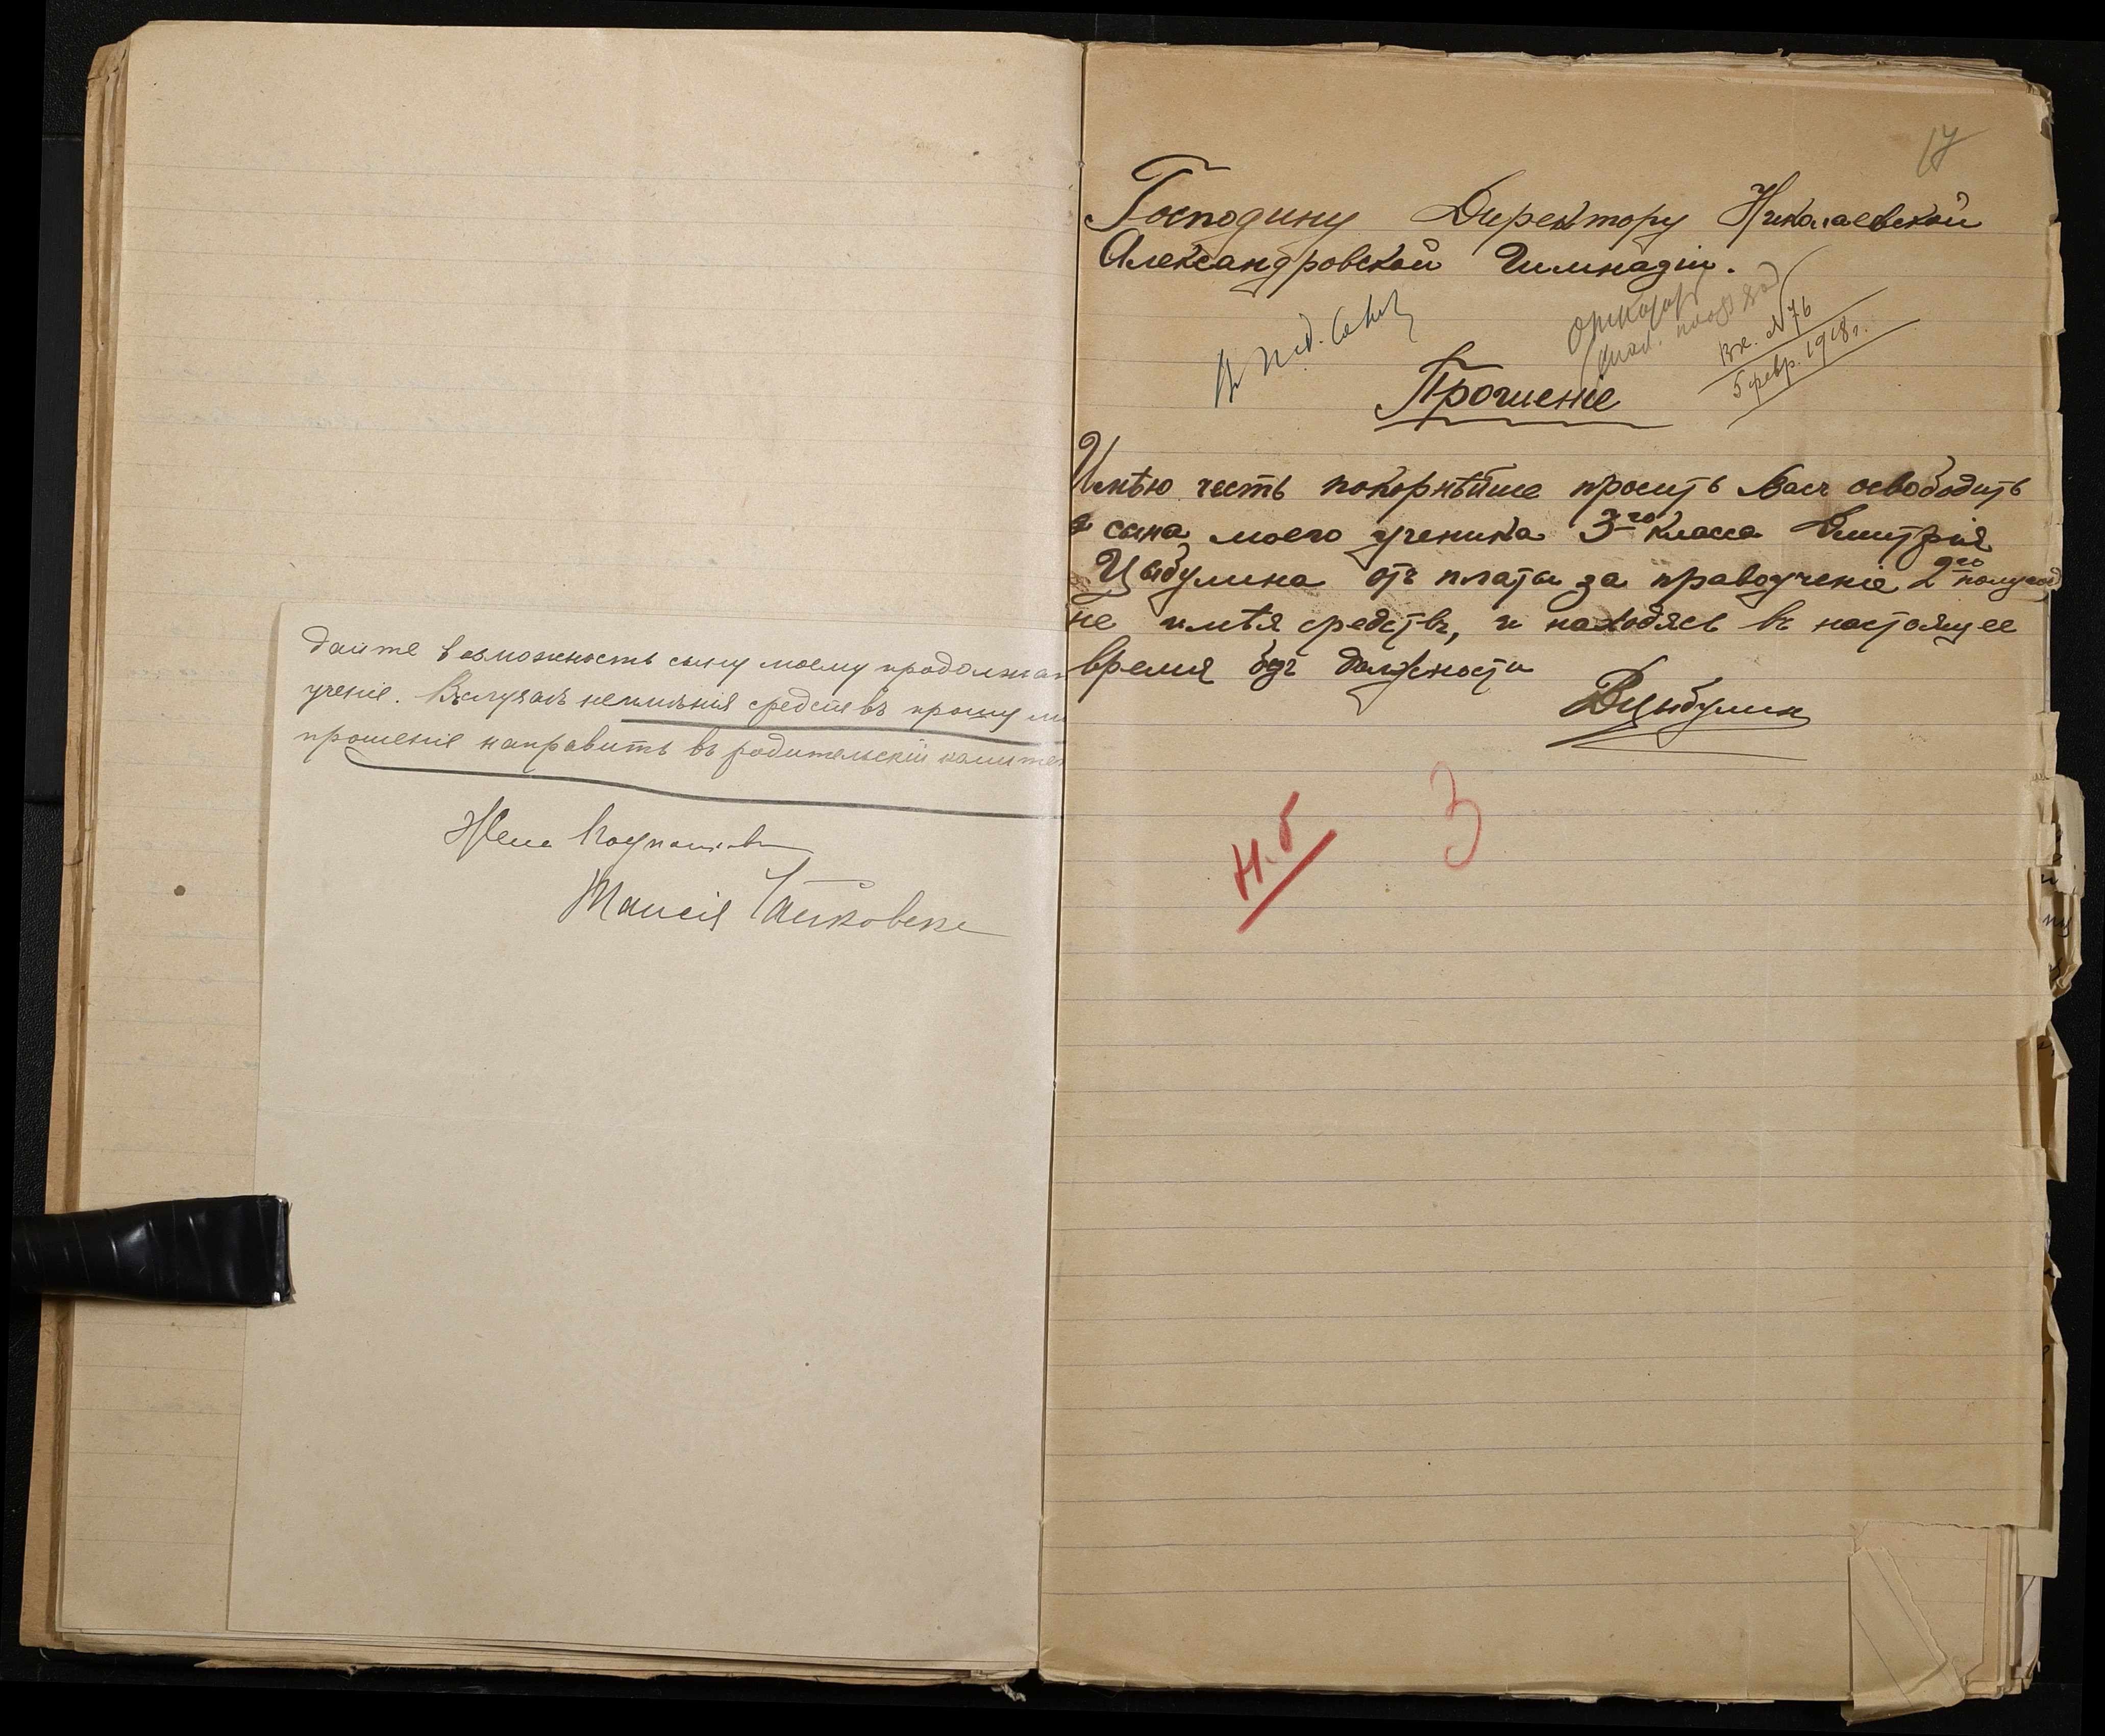 дайте возможность сыну моему продолжат
ученіе. Въ случаѣ неимѣнія средствъ прошу
прошеніе направить въ родительскій комитет
Жена
Таисія
17
Господину Директору Николаевской
Александровской Гимназіи.
Вх. №76
5 февр. 1918 г.
Прошеніе
Имѣю честь покорнѣйше просить Васъ освободить
сына моего ученика 3го класса Дмитрія
Цыбулина отъ платы за правоученіе 2го полугод
не имѣя средствъ, и находясь въ настоящее
время безъ должности
ДЦыбулин
Н.б
3